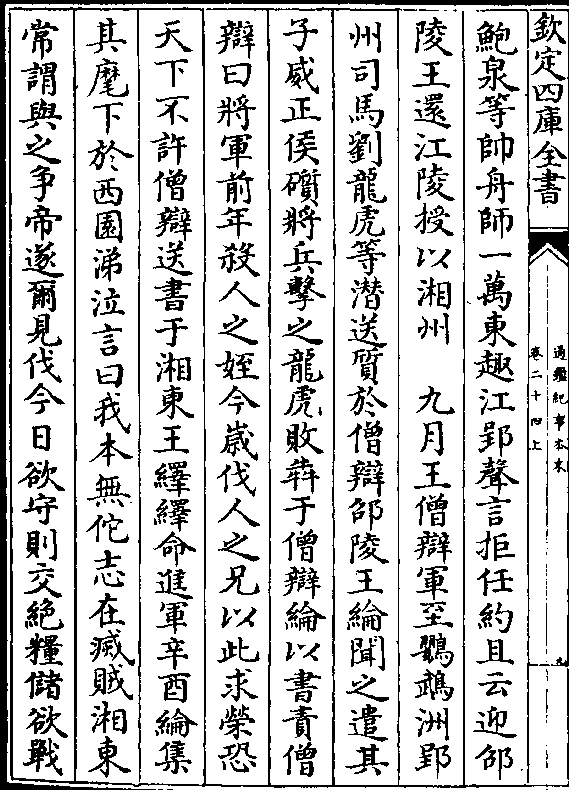 欽定四庫全書
通鑑紀事本末
卷二十四上
鮑泉等帥舟師一萬東趣江郢聲言拒任約且云迎邵
陵王還江陵授以湘州　九月王僧辯軍至鸚鵡洲郢
州司馬劉龍虎等潜送質於僧辯邵陵王綸聞之遣其
子威正侯礩將兵擊之龍虎敗犇于僧辯綸以書責僧
辯曰將軍前年殺人之姪今歲伐人之兄以此求榮恐
天下不許僧辯送書于湘東王繹繹命進軍辛酉綸集
其麾下於西園涕泣言曰我本無佗志在滅賊湘東
常謂與之争帝遂爾見伐今日欲守則交絶糧儲欲戰